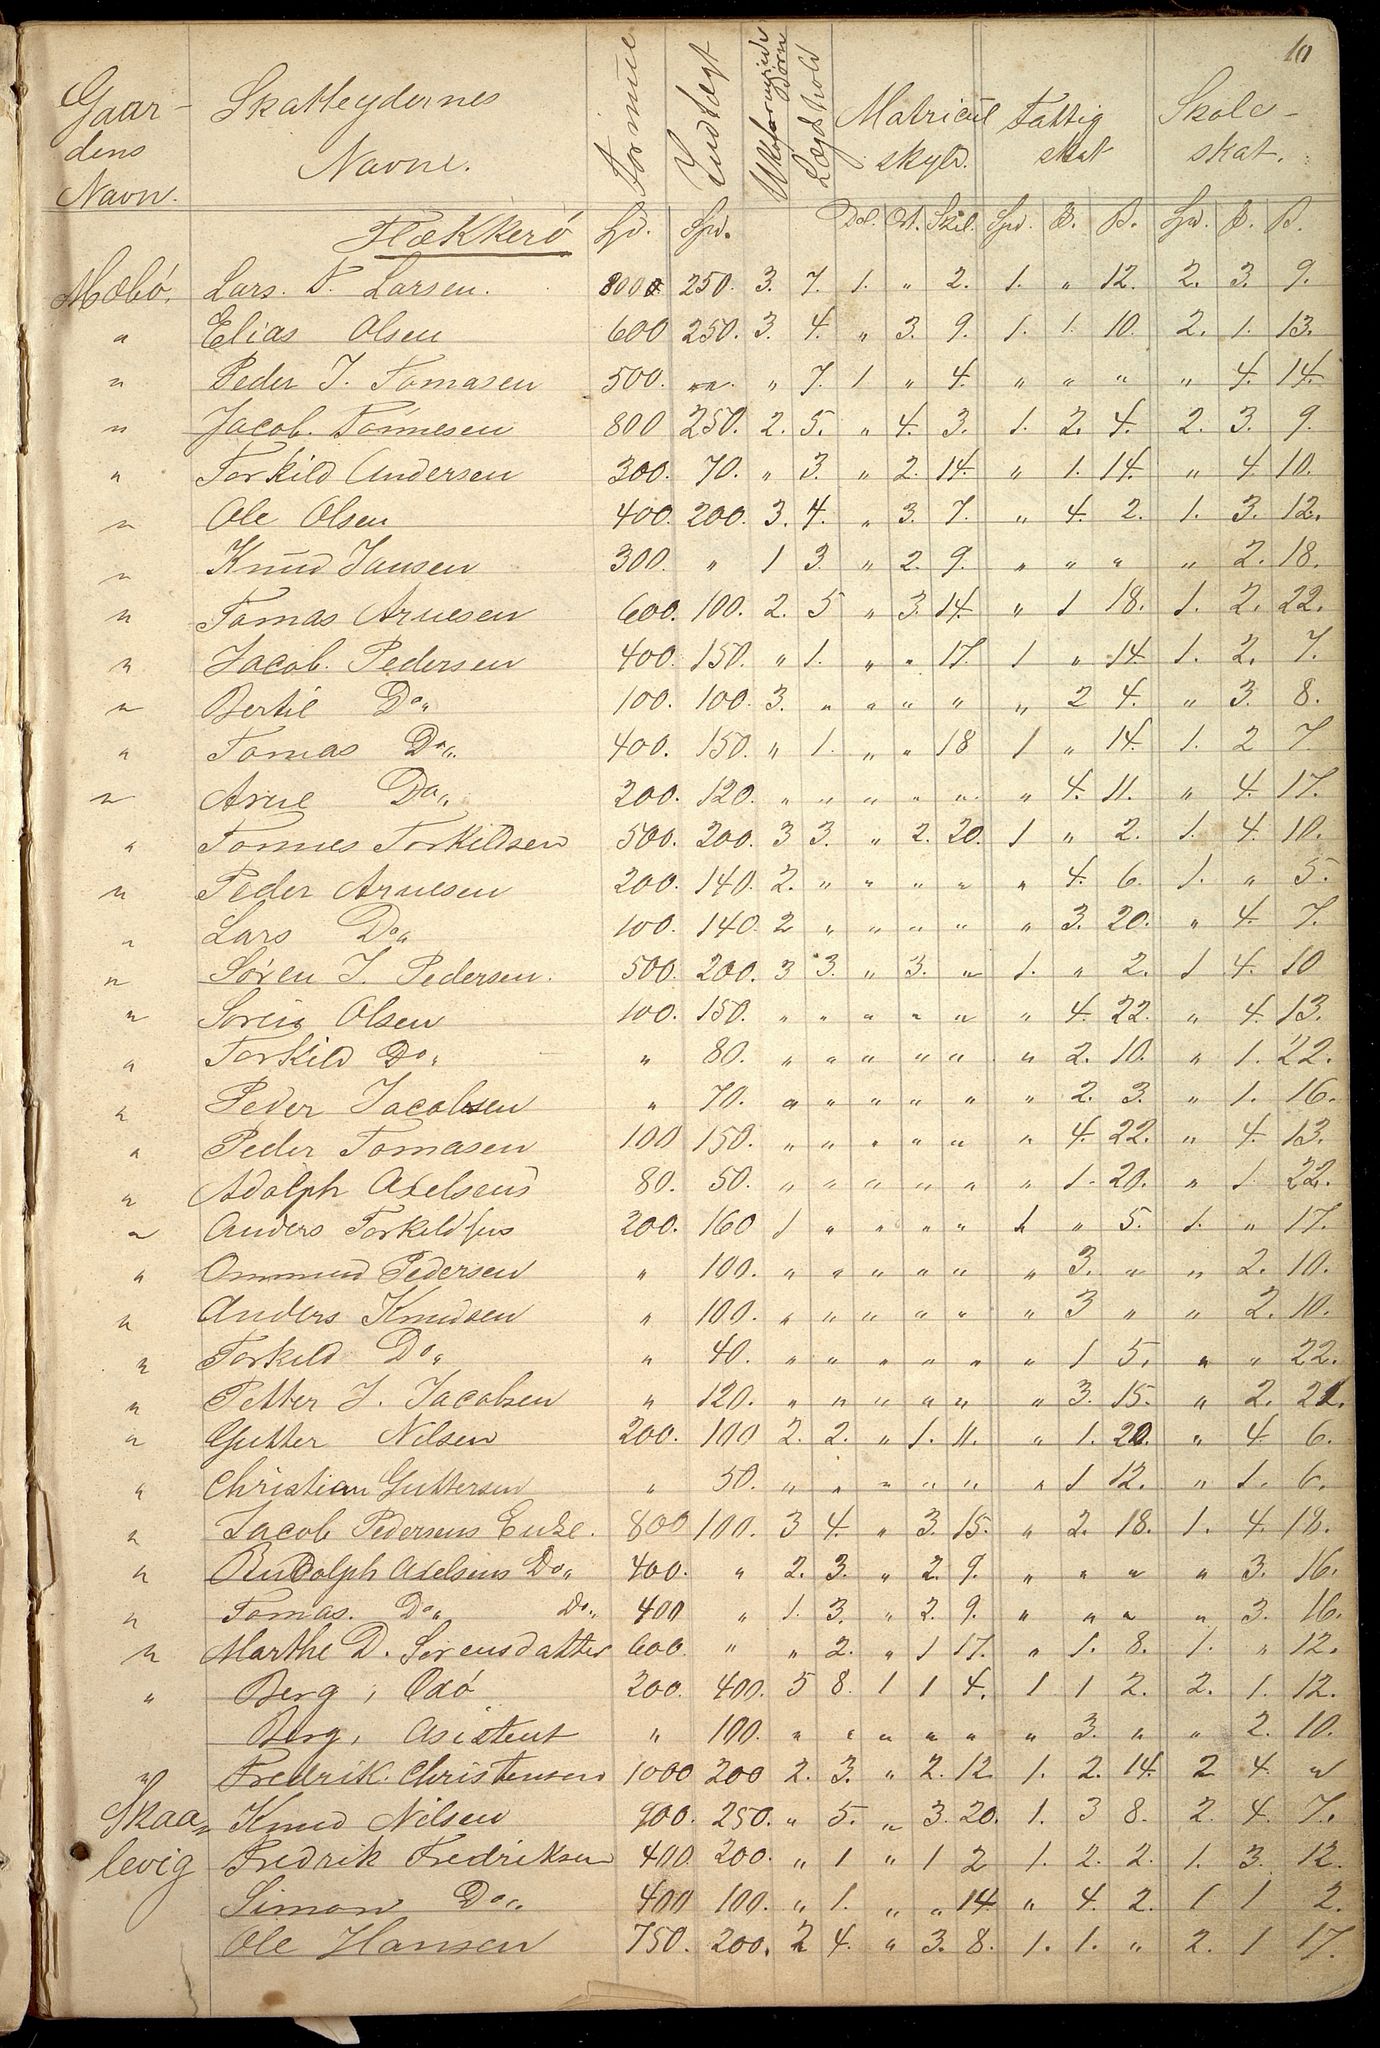 10
Gaardens Navn. Skatteydernes Navne. Formue Indtægt Ukeforngride Børn Lægdshold Matricul skyld. Fattig skat Skole-skat.
Flækkerö Spd. Spd. Dal. Ort. Skil. Spd. B. Spd. B.
Mæbö. Lars. T. Larsen. 800 250. 3. 7. 1. " 2. 1. " 12. 2. 3. 9.
" Elias Olsen 600 250. 3. 4. " 3. 9. 1. 1. 10. 2. 1. 13.
" Peder J. Tomasen 500. " " 7. 1. " 4. " " " " 4. 14.
" Jacob. Tönnesen 800 250. 2. 5. " 4. 3. 1. 2. 4. 2. 3. 9.
" Torkild Andersen 300. 70. " 3. " 2. 14. " 1. 14. " 4. 10.
" Ole Olsen 400. 200. 3. 4. " 3. 7. " 4. 2. 1. 3. 12.
" Knud Jansen 300. " 1 3. " 2. 9. " " " " 2. 18.
" Tomas Arnesen 600. 100. 2. 5 " 3. 14. " 1 18. 1. 2. 22.
" Jacob. Pedersen 400. 150. " 1. " " 17. 1 " 14. 1. 2. 7.
" Bertil Do" 100. 100. 3. " " " " " 2 4. " 3. 8.
" Tomas Do". 400. 150. " 1. " " 18 1 " 14. 1. 2 7.
" Arne Do" 200. 120. " " " " " " 4. 11. " 4. 17.
" Tonnes Torkildsen 500. 200. 3 3. " 2. 20. 1 " 2. 1. 4. 10.
" Peder Arnesen 200. 140. 2. " " " " " 4. 6. 1. " 5.
" Lars Do" 100. 140. 2 " " " " " 3. 20. " 4. 7.
" Sören J. Pedersen. 500. 200. 3 3. " 3. " 1. " 2. 1 4. 10
" Sören Olsen 100. 150. " " " " " " 4. 22. " 4. 13.
" Torkild Do" " 80. " " " " " " 2. 10. " 1. 22.
" Peder Jacobsen " 70. " " " " " " 2. 3. " 1. 16.
" Peder Tomasen 100 150. " " " " " " 4. 22. " 4. 13.
" Adolph Axelsens 80. 50. " " " " " " 1. 20. " 1 22.
" Anders Torkildsens 200. 160 1 " " " " 1 " 5. 1. " 17.
" Ommund Pedersen " 100. " " " " " " 3. " " 2. 10.
" Anders Knudsen " 100. " " " " " " 3 " " 2. 10.
" Torkild Do" " 40. " " " " " " 1 5. " " 22.
" Petter J. Jacobsen " 120. " " " " " " 3. 15. " 2. 21.
" Gutter Nilsen 200. 100 2. 2. " 1. 11. " 1. 20. " 4. 6.
" Christian Guttersen " 50. " " " " " " 1 12. " 1. 6.
" Jacob Pedersens Enke. 800 100. 3 4. " 3. 15. " 2. 18. 1. 4. 18.
" Rudolph Axelsens Do" 400. " 2. 3. " 2. 9. " " " " 3. 16.
" Tomas. Do" Do" 400 " 1. 3. " 2. 9. " " " " 3. 16.
" Marthe D. Sorensdatter 600. " " 2. " 1 17. " 1. 8. 1. " 12.
" Berg, Odö 200. 400. 5 8. 1 1 4. 1 1 2. 2. 1. 12.
Berg, Asistent " 100. " " " " " " 3. " " 2. 10.
" Fredrik. Christensen 1000 200 2. 3. " 2. 12. 1. 2. 14. 2 4. "
Skaa- Knud Nilsen 900. 250. " 5. " 3. 20. 1. 3 8. 2. 4. 7.
levig Fredrik Fredriksen 400. 200. " 1 " 1 2 1. 2. 2. 1. 3. 12.
Simon Do" 400 100. " 1. " " 14. " 4. 2. 1 1 2.
Ole Hansen 750. 200. 2 4. " 3. 8. 1. 1. " 2. 1 17.